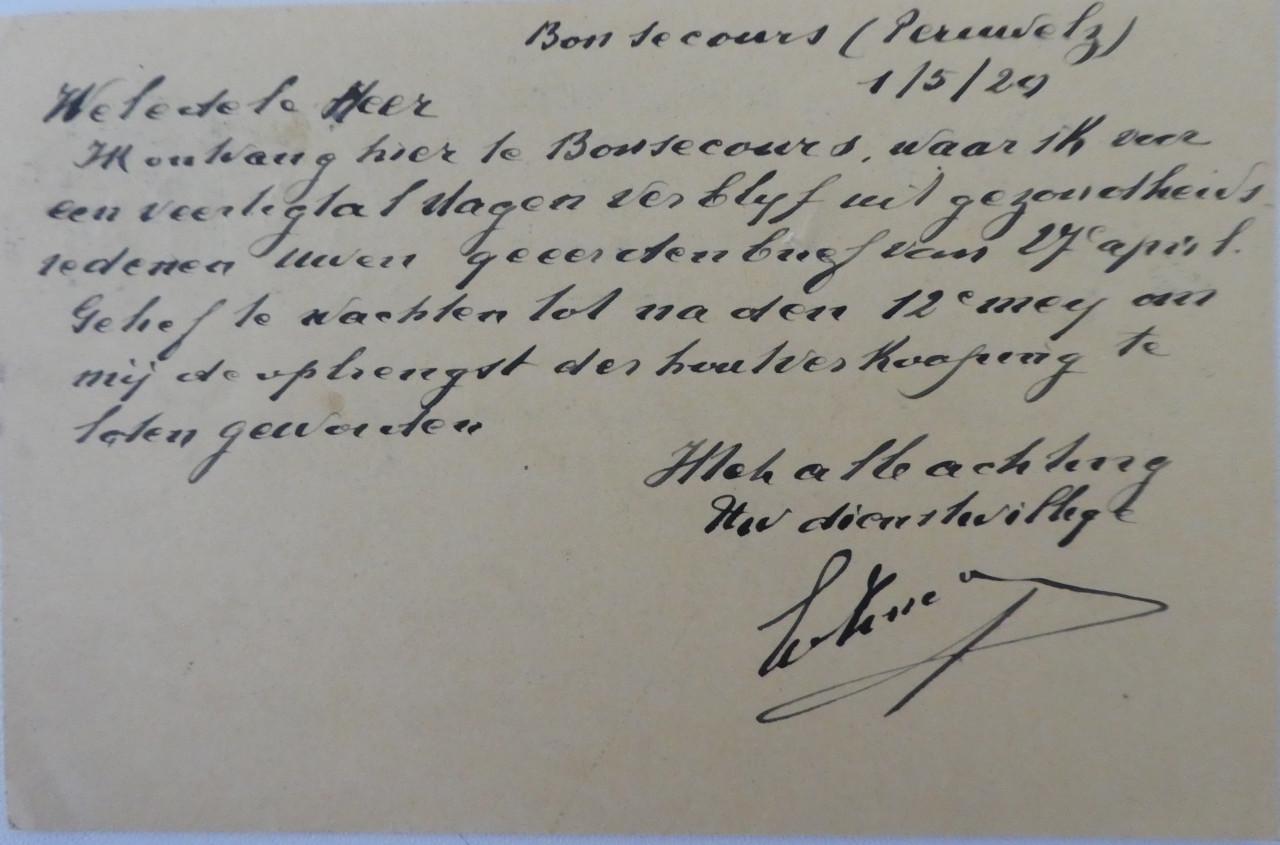 Bonsecours (Peruwelz)
1/5/29
Weledele Heer
Ik ontvang hier te Bonsecours, waar ik voor
een veertigtal dagen verblyf uit gezondheids-
redenen uwen geeerden brief van 27e april.
Gelief te wachten tot na den 12e mey om
mij de opbrengst der houtverkooping te
laten geworden
Met alle achting
Uw dienstwillige